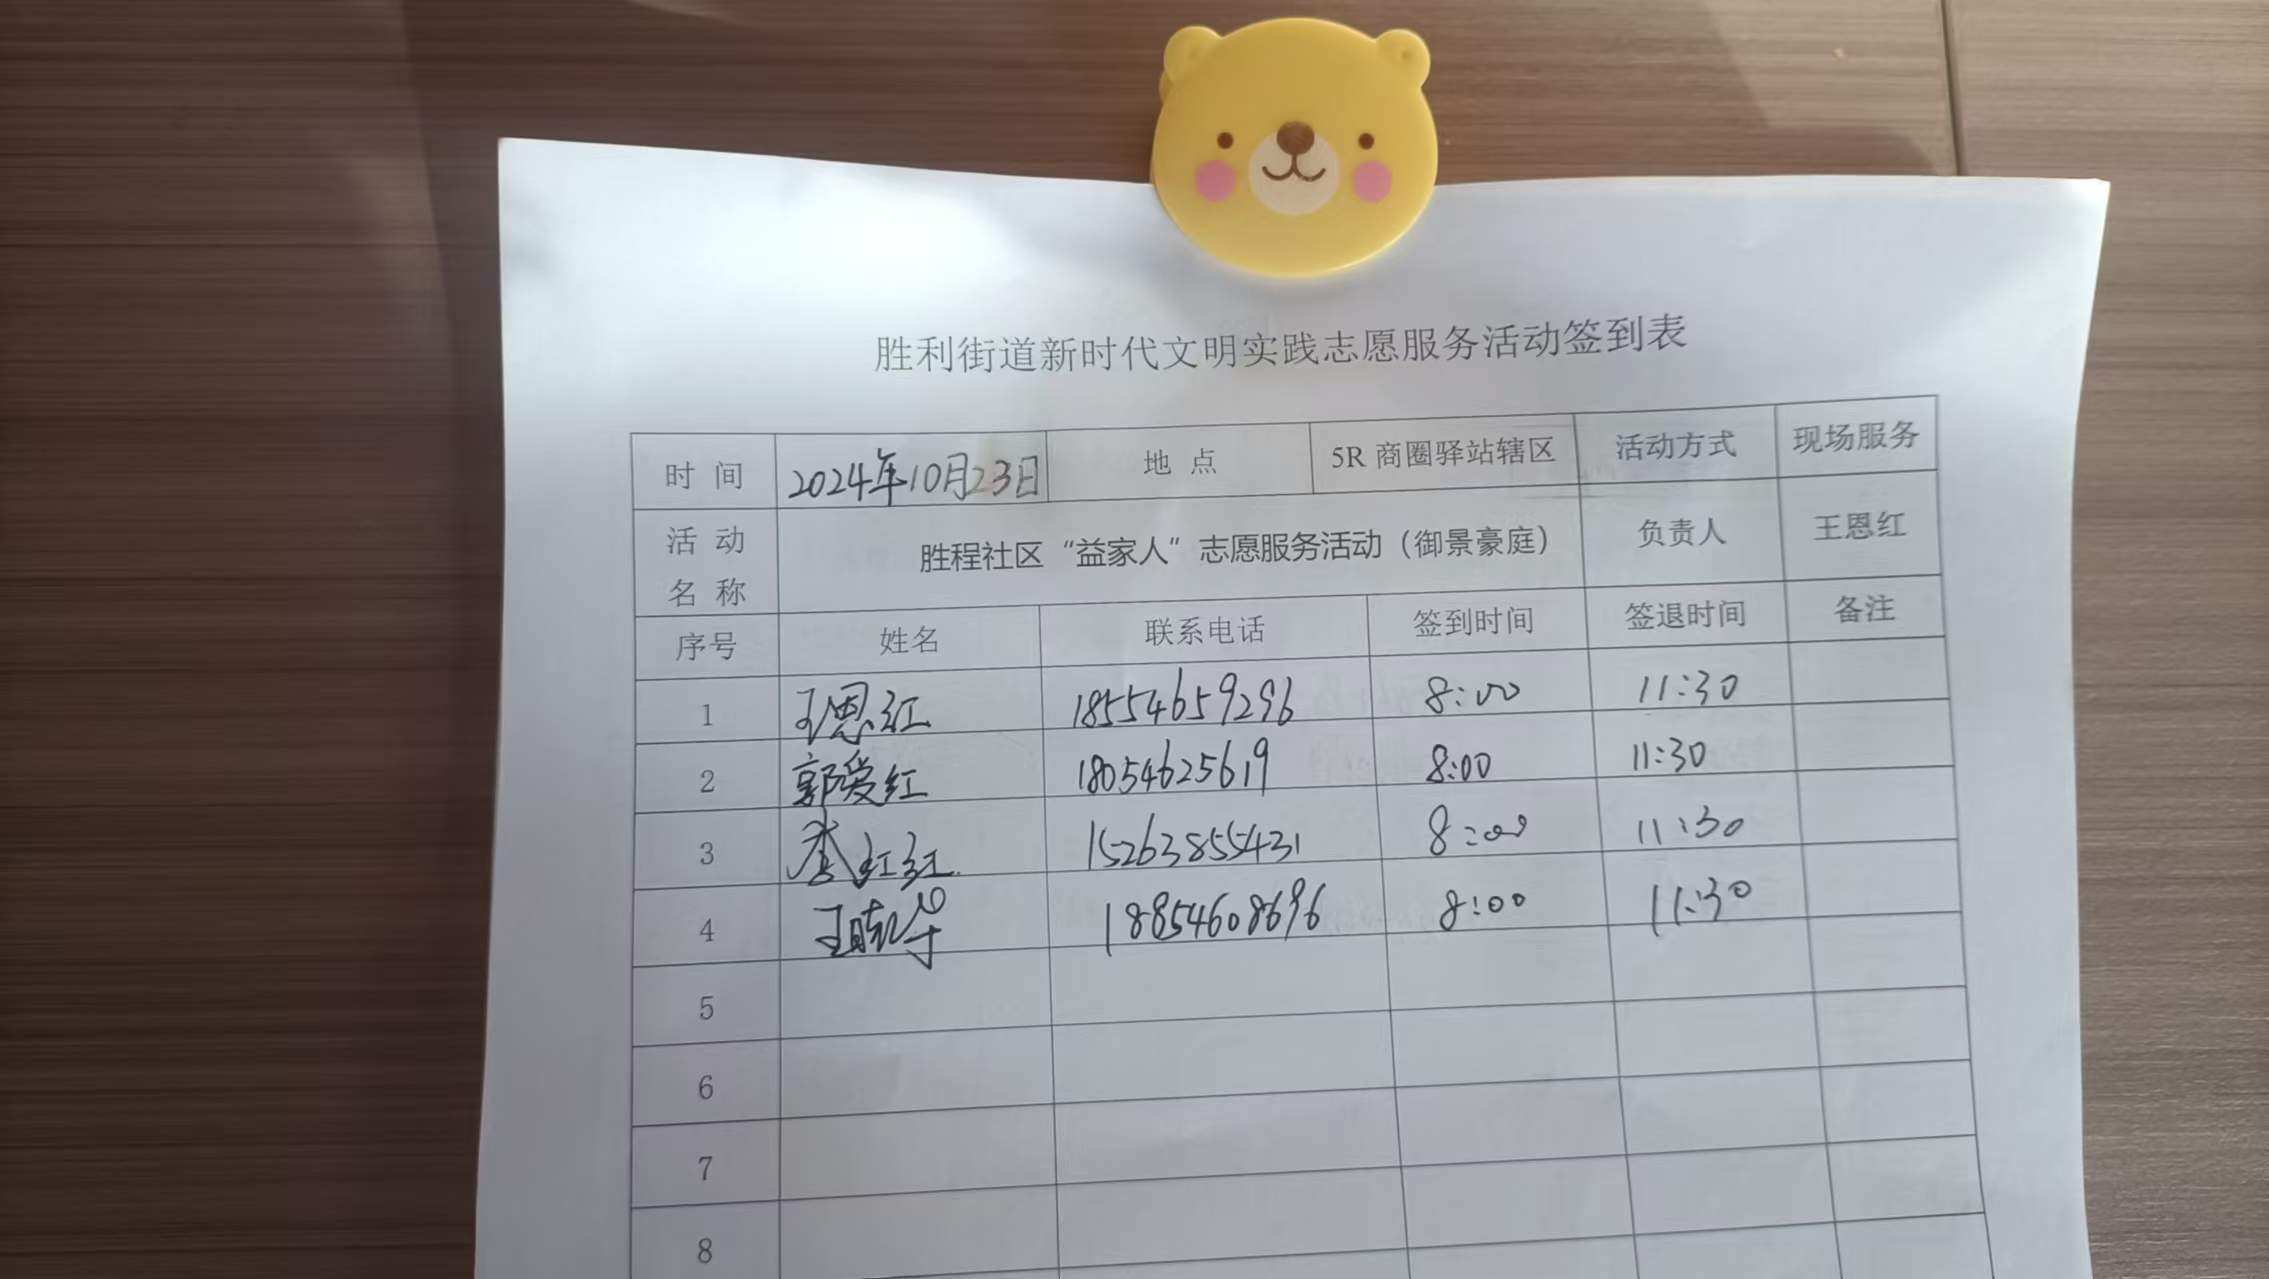 胜利街道新时代文明实践志愿服务活动签到表
时 间 2024年10月23日 地 点 5R 商圈驿站辖区 活动方式 现场服务
活 动 名 称 胜程社区“益家人”志愿服务活动（御景豪庭） 负责人 王恩红
序号 姓名 联系电话 签到时间 签退时间 备注
1 王恩红 18554659296 8:00 11:30
2 郭爱红 18054625619 8:00 11:30
3 李红红 15263855431 8:00 11:30
4 王晓华 18854608696 8:00 11:30
5
6
7
8